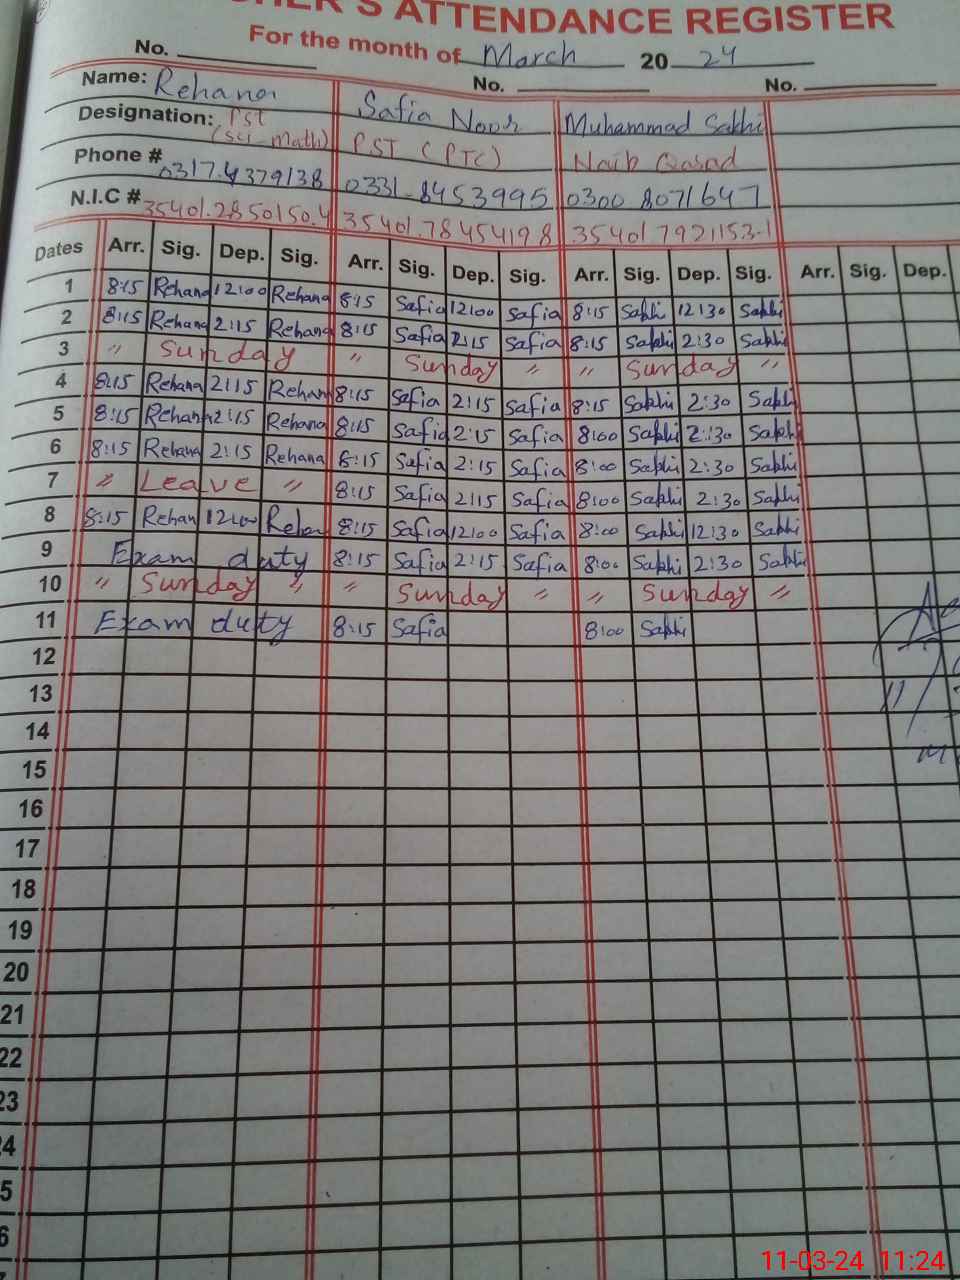 'S ATTENDANCE REGISTER
For the month of March 20 24
No. No. No.
Name: Rehana Safia Noor Muhammad Sakhi
Designation: PST (Sci-Math) PST (PTC) Naib Qasad
Phone # 0317.4379138 0331-8453995 0300 8071647
N.I.C # 35401.2850150.4 35401.78454198 35401.7921153-1
Dates Arr. Sig. Dep. Sig. Arr. Sig. Dep. Sig. Arr. Sig. Dep. Sig. Arr. Sig. Dep.
1 8:15 Rehana 12:00 Rehana 8:15 Safia 12:00 Safia 8:15 Sakhi 12:30 Sakhi
2 8:15 Rehana 2:15 Rehana 8:15 Safia 2:15 Safia 8:15 Sakhi 2:30 Sakhi
3 " Sunday " Sunday " " Sunday "
4 8:15 Rehana 2:15 Rehan 8:15 Safia 2:15 Safia 8:15 Sakhi 2:30 Sakhi
5 8:15 Rehana 2:15 Rehana 8:15 Safia 2:15 Safia 8:00 Sakhi 2:30 Sakhi
6 8:15 Rehana 2:15 Rehana 8:15 Safia 2:15 Safia 8:00 Sakhi 2:30 Sakhi
7 " Leave " 8:15 Safia 2:15 Safia 8:00 Sakhi 2:30 Sakhi
8 8:15 Rehan 12:00 Rehan 8:15 Safia 12:00 Safia 8:00 Sakhi 12:30 Sakhi
9 Exam duty 8:15 Safia 2:15 Safia 8:00 Sakhi 2:30 Sakhi
10 " Sunday " " Sunday " " Sunday "
11 Exam duty 8:15 Safia 8:00 Sakhi
12
13
14
15
16
17
18
19
20
21
22
23
11-03-24 11:24